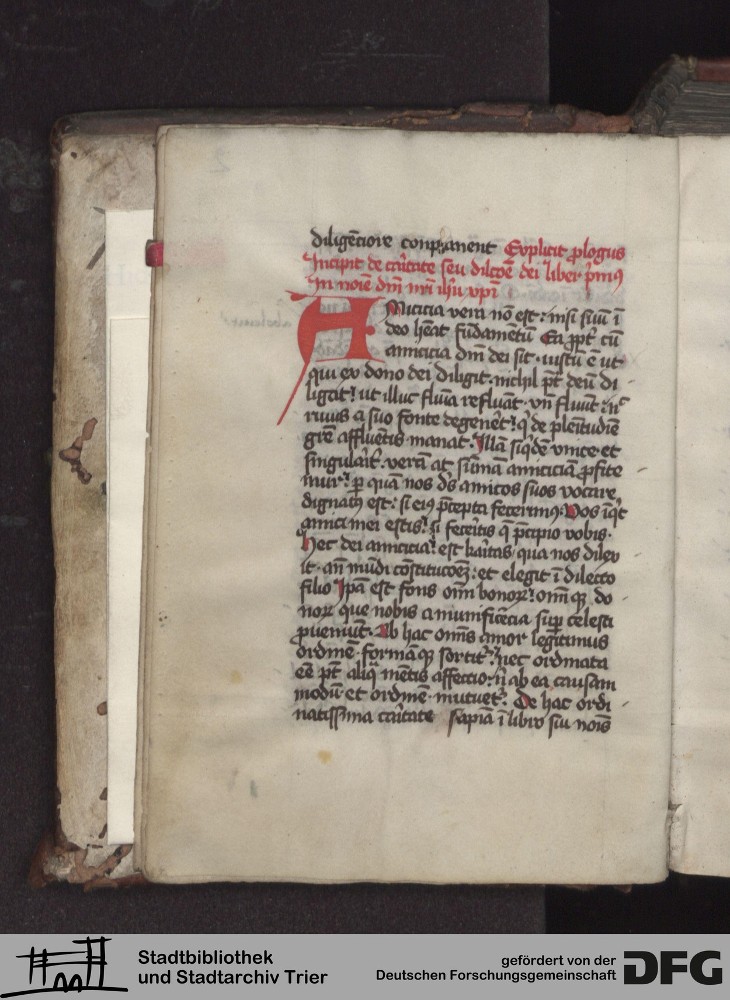 diligēciore conpꝫanent Explicit ꝓlogus
Incipit de cā̄itate seu dilcōe dei liber pͥmꝰ
In noīe dnī nrī ihū xpī
AMicicia vera nō est: nisi suū ī
deo hēat fūdamētū Ea ꝓpt̄ cū
amicicia dnī dei sit · iustū ē ut
qui ex dono dei diligit · nichil p̄t deū di
ligat! ut illuc fluīa refluāt · vn̄ fluūt: nͨ
riuus a suo fonte degeneret! qͥ de plenitudīe
gr̄e affluētis manat · Illā siqͥdē vnice et
singularit̄ · verā at sūmā amiciciā ꝓfite
mur! ꝑ quā nos ds̄ amicos suos vocare
dignatꝰ est: si eiꝰ p̄cepta fecerimꝰ · Vos īqͥt
amici mei estis! si feceitis q̄ p̄cipio vobis ·
Hec dei amicicia! est karitas · qua nos dilex
it · an̄ mūdi cōstitucōeꝫ: et elegit ī dilecto
filio Ip̄a est fons oīm bonoꝝ! oīm qꝫ do
noꝝ que nobis a munificēcia suꝑ celesti
ꝓueniūt · Ab hac om̄s amor legitimus
ordinē · formāqꝫ sortit᷑: nec ordinata
eē p̄t aliq̄ mētis affectio: n̄ ab ea causam
modū et ordinē · mutuet᷑: De hac ordi
natissima cāritate sapīa ī libro sui noīs
Stadtbibliothek
und Stadtarchiv Trier
gefördert von der
Deutschen Forschungsgemeinschaft
DFG